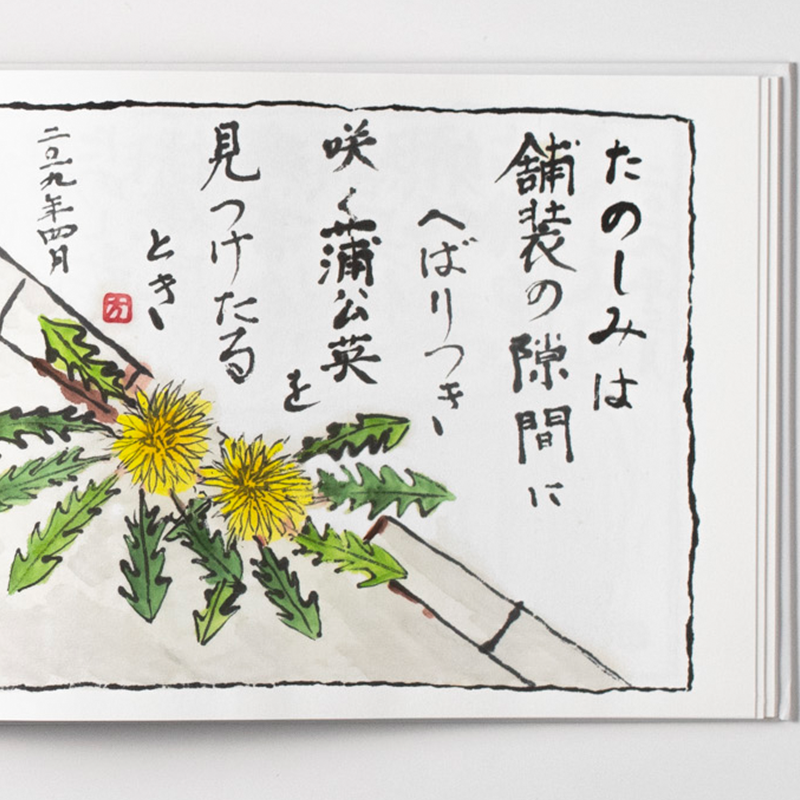 たのしみは
舗装の隙間に
へばりつき
咲く蒲公英を
見つけたる
とき
二〇一九年四月